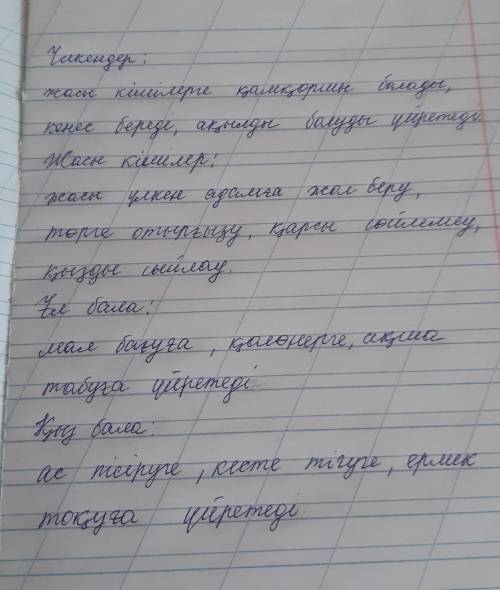 Үлкендер:
жасы кішілерге қамқоршы болады,
кеңес береді, ақылды болуды үйретеді
Жасы кішілер:
жасы үлкен адамға жол беру,
төрге отырғызу, қарсы сөйлемеу,
қызды сыйлау.
Ұл бала:
мал бағуға, қолөнерге, ақша
табуға үйретеді
Қыз бала:
ас пісіруге, кесте тігуге, ермек
тоқуға үйретеді